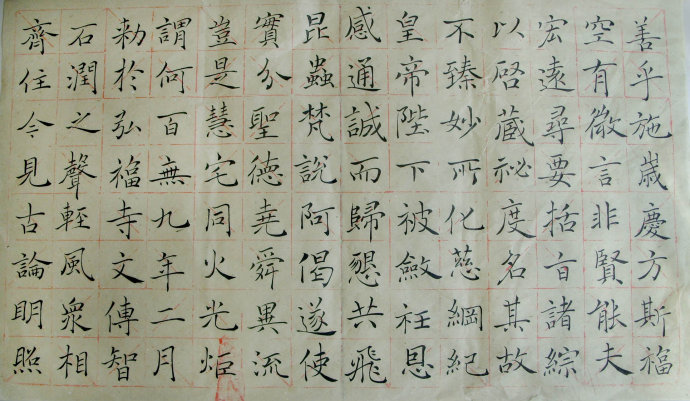 善乎施歲慶方斯福
空有微言非賢能夫
宏遠尋要括旨諸綜
以啓蔵祕度名其故
不臻妙所化慈綱紀
皇帝陛下被斂衽恩
感通誠而歸懇共飛
昆蟲梵說阿偈遂使
寶分聖德堯舜異流
豈是慧宅同火光炬
謂何百無九年二月
勅於弘福寺文傳智
石潤之聲輕風衆相
齊住今見古論明照